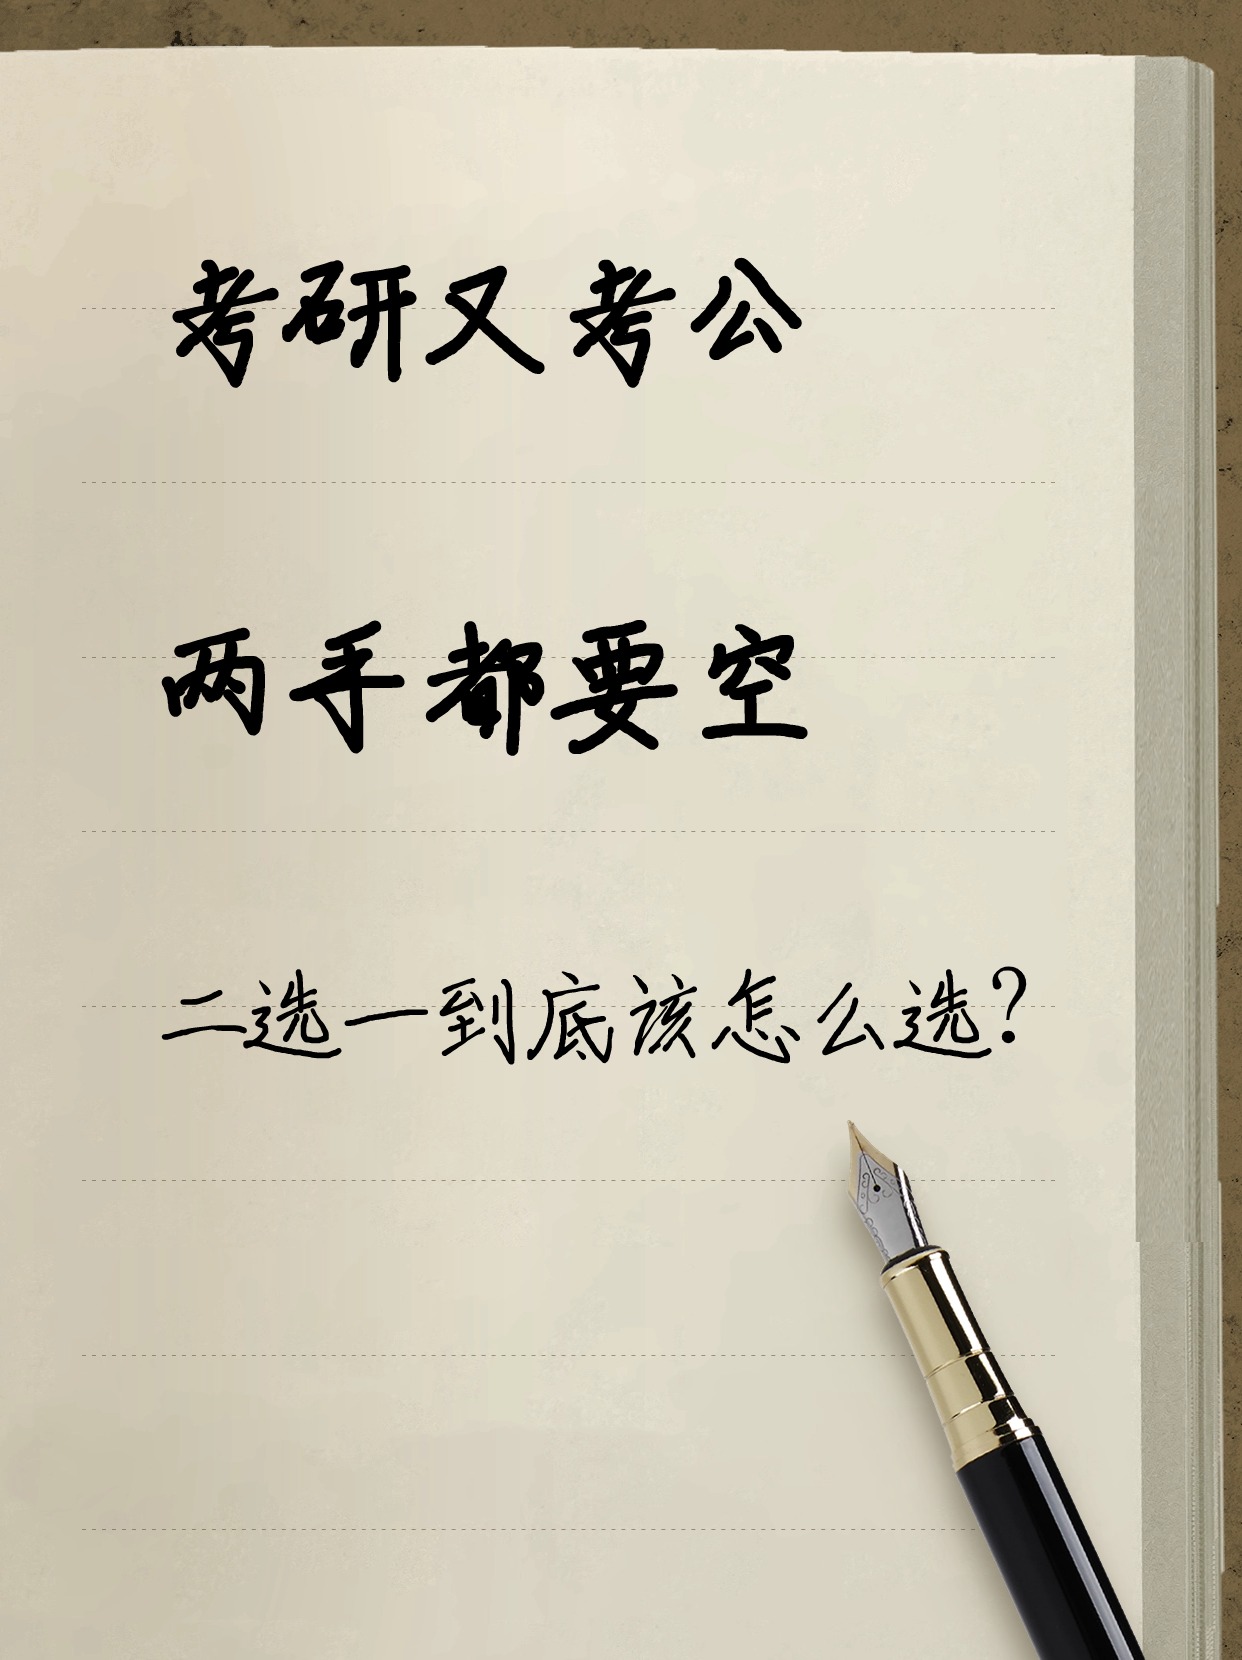 考研又考公
两手都要空
二选一到底该怎么选?